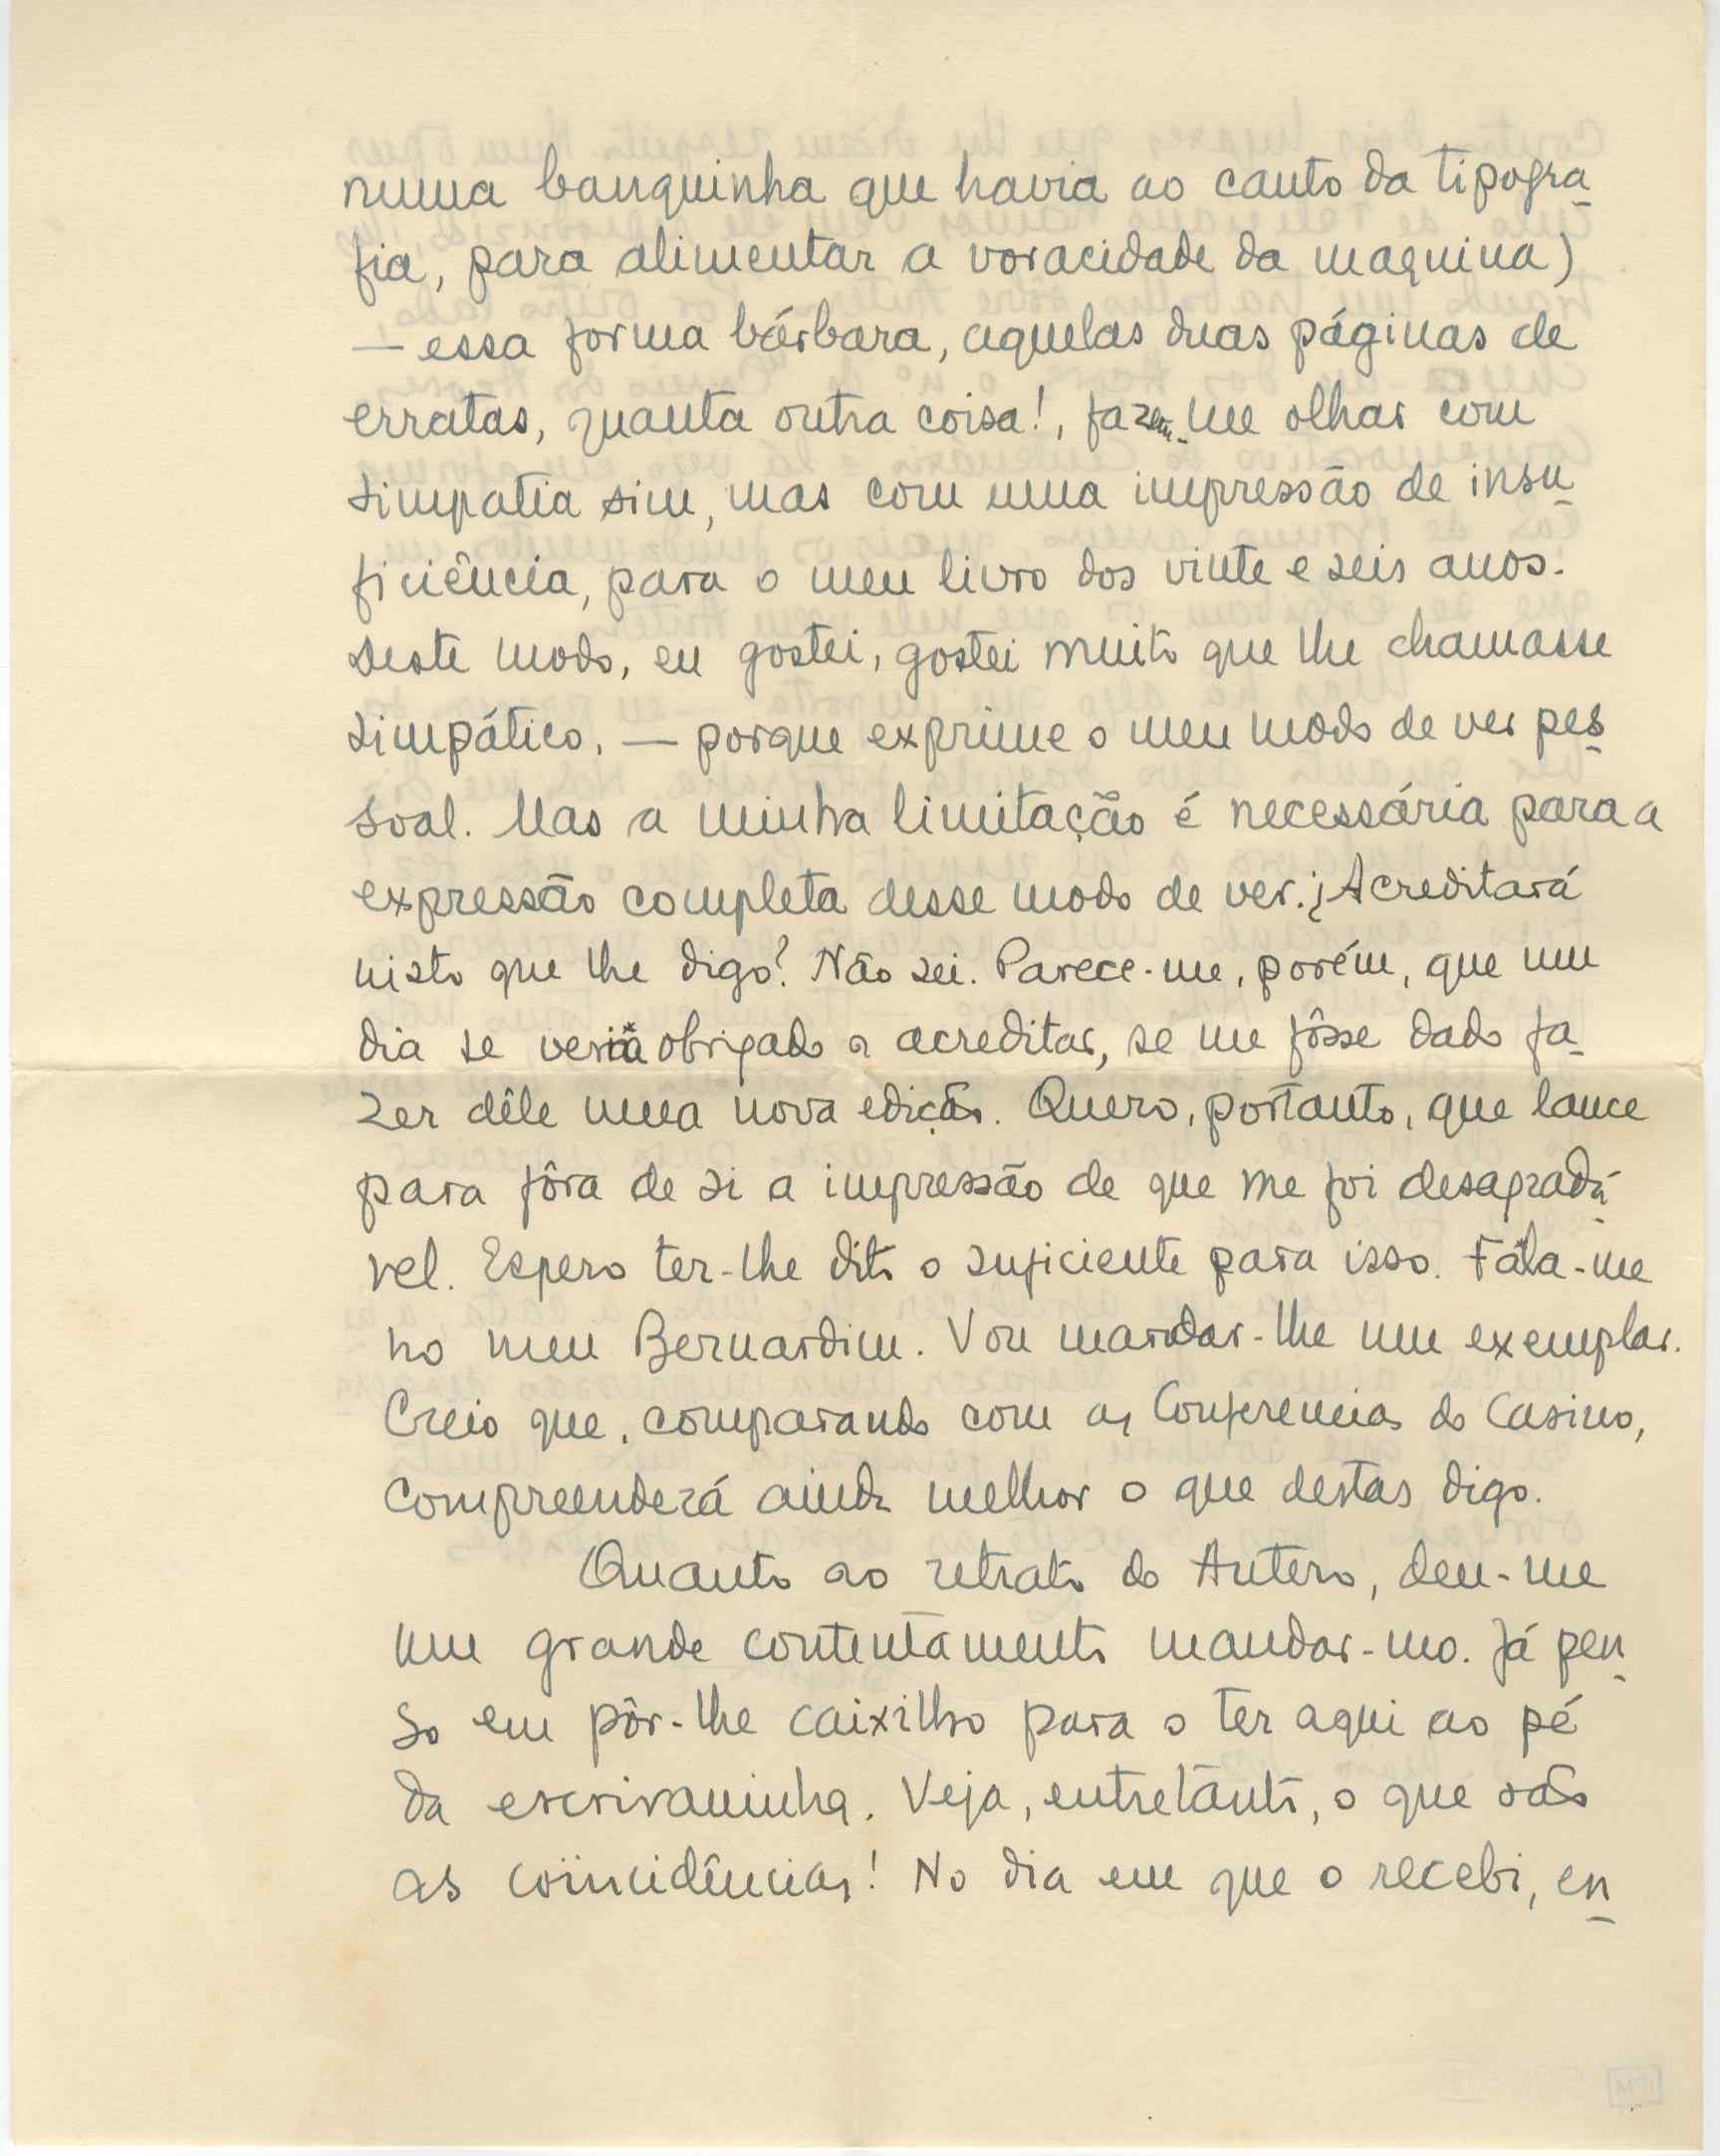 numa banquinha que havia ao canto da tipogra-
fia, para alimentar a voracidade da maquina)
— essa forma bárbara, aquelas duas páginas de
erratas, quanta outra coisa!, fazem-me olhar com
simpatia sim, mas com uma impressão de insu-
ficiência, para o meu livro dos vinte e seis anos.
Deste modo, eu gostei, gostei muito que lhe chamasse
simpático, — porque exprime o meu modo de ver pes-
soal. Mas a minha limitação é necessária para a
expressão completa desse modo de ver. ¿Acreditará
nisto que lhe digo? Não sei. Parece-me, porém, que um
dia se veria obrigado a acreditar, se me fôsse dado fa-
zer dêle uma nova edição. Quero, portanto, que lance
para fôra de si a impressão de que me foi desagradá-
vel. Espero ter-lhe dito o suficiente para isso. Fala-me
no meu Bernardim. Vou mandar-lhe um exemplar.
Creio que, comparando com as Conferencias do Casino,
compreenderá ainda melhor o que destas digo.
Quanto ao retrato do Antero, deu-me
um grande contentamento mandar-mo. Já pen-
so em pôr-lhe caixilho para o ter aqui ao pé
da escrivaninha. Veja, entretanto, o que são
as coïncidências! No dia em que o recebi, en-